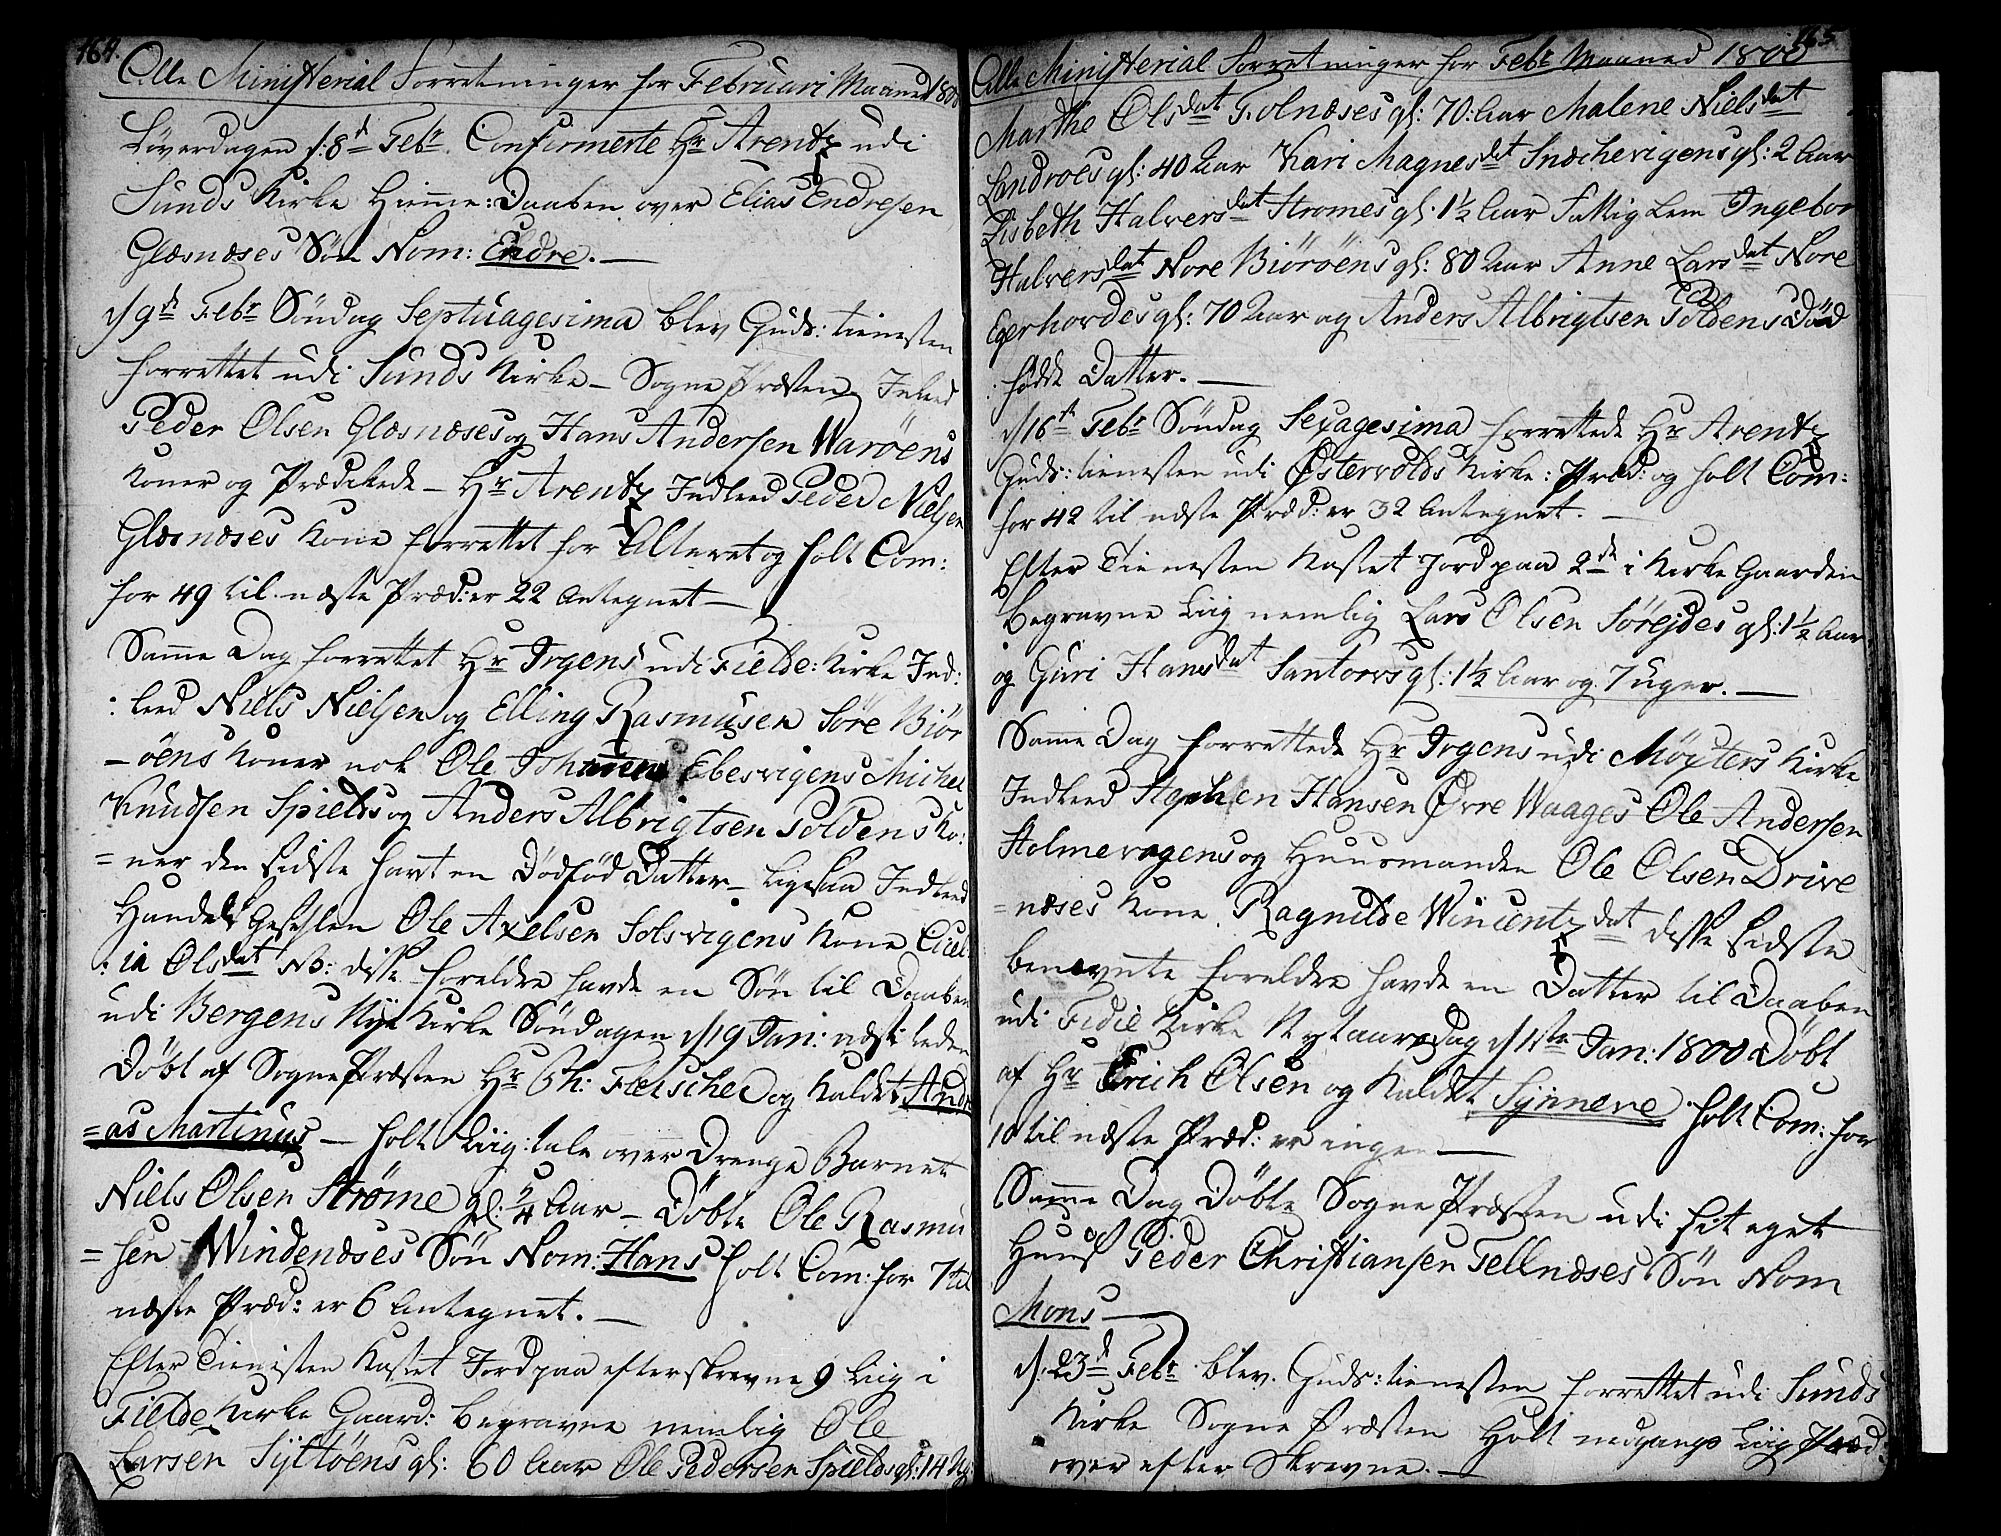 164.
Alle Ministerial Forretninger for Februari Maaned 1800
Løverdagen d: 8d Febr. Confirmerte Hr Arentz udi
Sunds Kirke Hieme: Daaben over Elias Endresen
Glæsnæses Søn Nom: Endre. —
d/ 9de Febr Søndag Septuagesima blev Guds: tienesten
forrettet udi Sunds Kirke — Sogne Præsten Inleed
Peder Olsen Glæsnæses og Hans Andersen Warøens
Koner og Prædikede — Hr Arentz Indleed Peder Nielsen
Glæsnæses Kone forrettet for Alteret og holt Com:
for 49 til næste Præd: er 22 Antegnet —
Same Dag forrettet Hr Irgens udi Fielde: Kirke Ind:
: leed Niels Nielsen og Elling Rasmusen Søre Biør
— øens Koner nok Ole Johanen Ebesvigens Michel
Knudsen Spields og Anders Albrigtsen Toldens Ko:
= ner den sidste havt en Dødfød Datter — ligesaa Indleed
Handels Geselen Ole Axelsen Solsvigens Kone Cicel:
: ia Olsdat NB: disse foreldre havde en Søn til Daaben
udi Bergens Nye Kirke Søndagen d/19 Jan: næst: leden
Døbt af Sogne Præsten Hr Ch: Fleischer og Kaldet Andre
= as Martinus — holt Liig: tale over Drenge Barnet
Niels Olsen Strøme gl: 2/4 Aar — Døbte Ole Rasmu
= sen Windenæses Søn Nom: Hans holt Com: for 7 til
næste Præd: er 6 Antegnet. —
Efter Tienisten Kastet Jord paa efterskrevne 9 Liig i
Fielde Kirke Gaard: begravne nemlig Ole
Larsen Syltøens gl: 60 Aar Ole Pedersen Spields gl: 14 Ug:
165
Alle Ministerial Forretninger for Febr Maaned 1800
Marthe Olsdat Folnæses gl: 70: Aar Malene Nielsdat
Landroes gl: 40 Aar Kari Magnesdat Snechevigens gl: 2 Aar
Lisbeth Halversdat Stromes gl. 1½ Aar Fattig Lem Ingebor
Halversdat Nore Biørøens gl: 80 Aar Anne Larsdat Nore
Egerhordes gl: 70 Aar og Anders Albrigtsen Toldens Død
: fødde Datter. —
d/16de Febr Søndag Sexagesima forrettede Hr Arentz
Guds: tienesten udi Østervolds Kirke: Præd: og holt Com:
for 42 til næste Præd: er 32 Antegnet. —
Efter Tienesten Kastet Jord paa 2de i Kirke Gaarden
begravne Liig nemlig Lars Olsen Sørejdes gl: 1½ Aar
og Guri Hansdat Santorvs gl: 1½ Aar og 7 uger. —
Same Dag forrettede Hr Irgens udi Møgsters Kirke
Indleed Hansen Øvre Waages Ole Andersen
Stolmevogens og Huusmanden Ole Olsen Drive
= næses Kone Ragnilde Wincentzdat disse sidste
benævnte foreldre havde en Datter til Daaben
udi Fidie Kirke Nytaarsdag d/1ste Jan: 1800 Døbt
af Hr Erich Olsen og Kaldet Synneve holt Com: for
10 til næste Præd: er ingen —
Same Dag Døbte Sogne Præsten udi sit eget
Huus Peder Christiansen Tellnæses Søn Nom
Mons —
d. 23d Febr blev Guds: tienesten forrettet udi Sunds
Kirke Sogne Præsten Holt indgangs Liig Præd:
over efter Skrevne. —